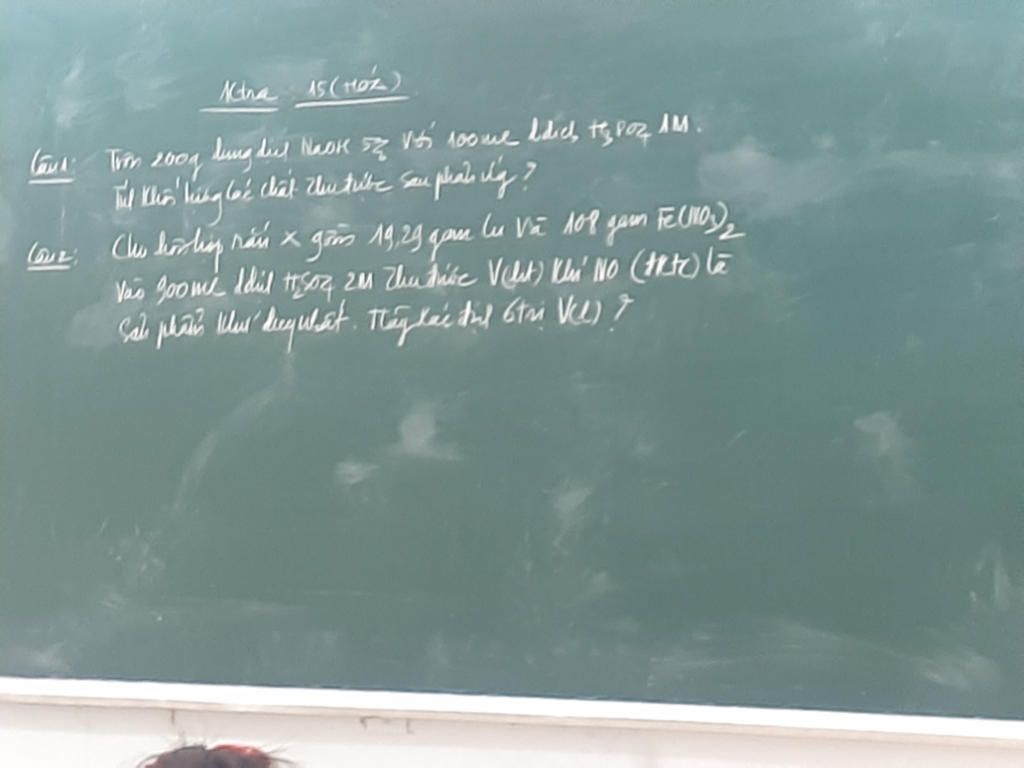 Ktra 15 (HOÁ)
Câu1: Trộn 200g dung dịch NaOH 5% Với 100ml ddịch H3PO4 1M.
Tính Khối lượng Các chất thu được Sau phản ứng?
Câu2: Cho hỗn hợp rắn X gồm 19,2g gam Cu Và 108 gam Fe(NO3)2
Vào 900ml ddịch H2SO4 2M thu được V(lít) Khí NO (đktc) là
Sản phẩm khử duy nhất. Hãy xác định Gtrị V(l)?